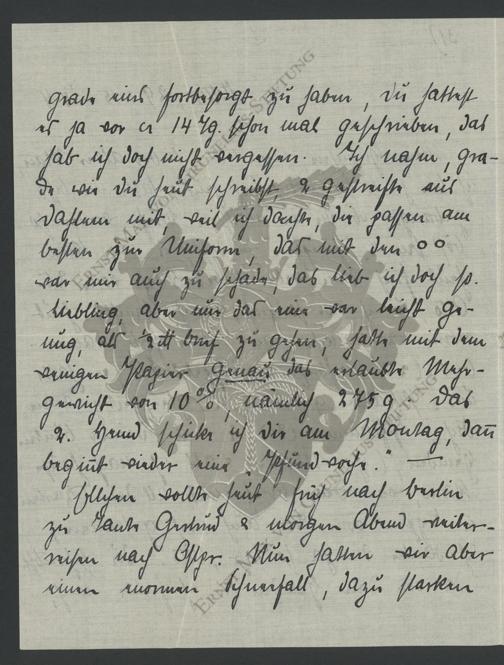 grade eins fortbesorgt zu haben, du hattest
es ja vor ca 14 Tg. schon mal geschrieben, das
hab ich doch nicht vergessen. Ich nahm, gra-
de wie du heut schreibst, 2 gestreifte aus
Dahlem mit, weil ich dachte, die passen am
besten zur Uniform, das mit den oo
war mir auch zu schade, das lieb ich doch so.
Liebling, aber nur das eine war leicht ge-
nug, als ½ ℔ brief zu gehen, hatte mit dem
wenigen Papier genau das erlaubte Mehr-
gewicht von 10%, nämlich 275 g. Das
2. Hemd schicke ich dir am Montag, dan̄
begin̄t wieder eine „Pfundwoche." —
wollte heut früh nach Berlin
zu Tante Gertrud & morgen Abend weiter-
reisen nach Ostpr. Nun hatten wir aber
einen enormen Schneefall, dazu starken
ERNST MARTIN
STIFTUNG
ERNST
STIFTUNG